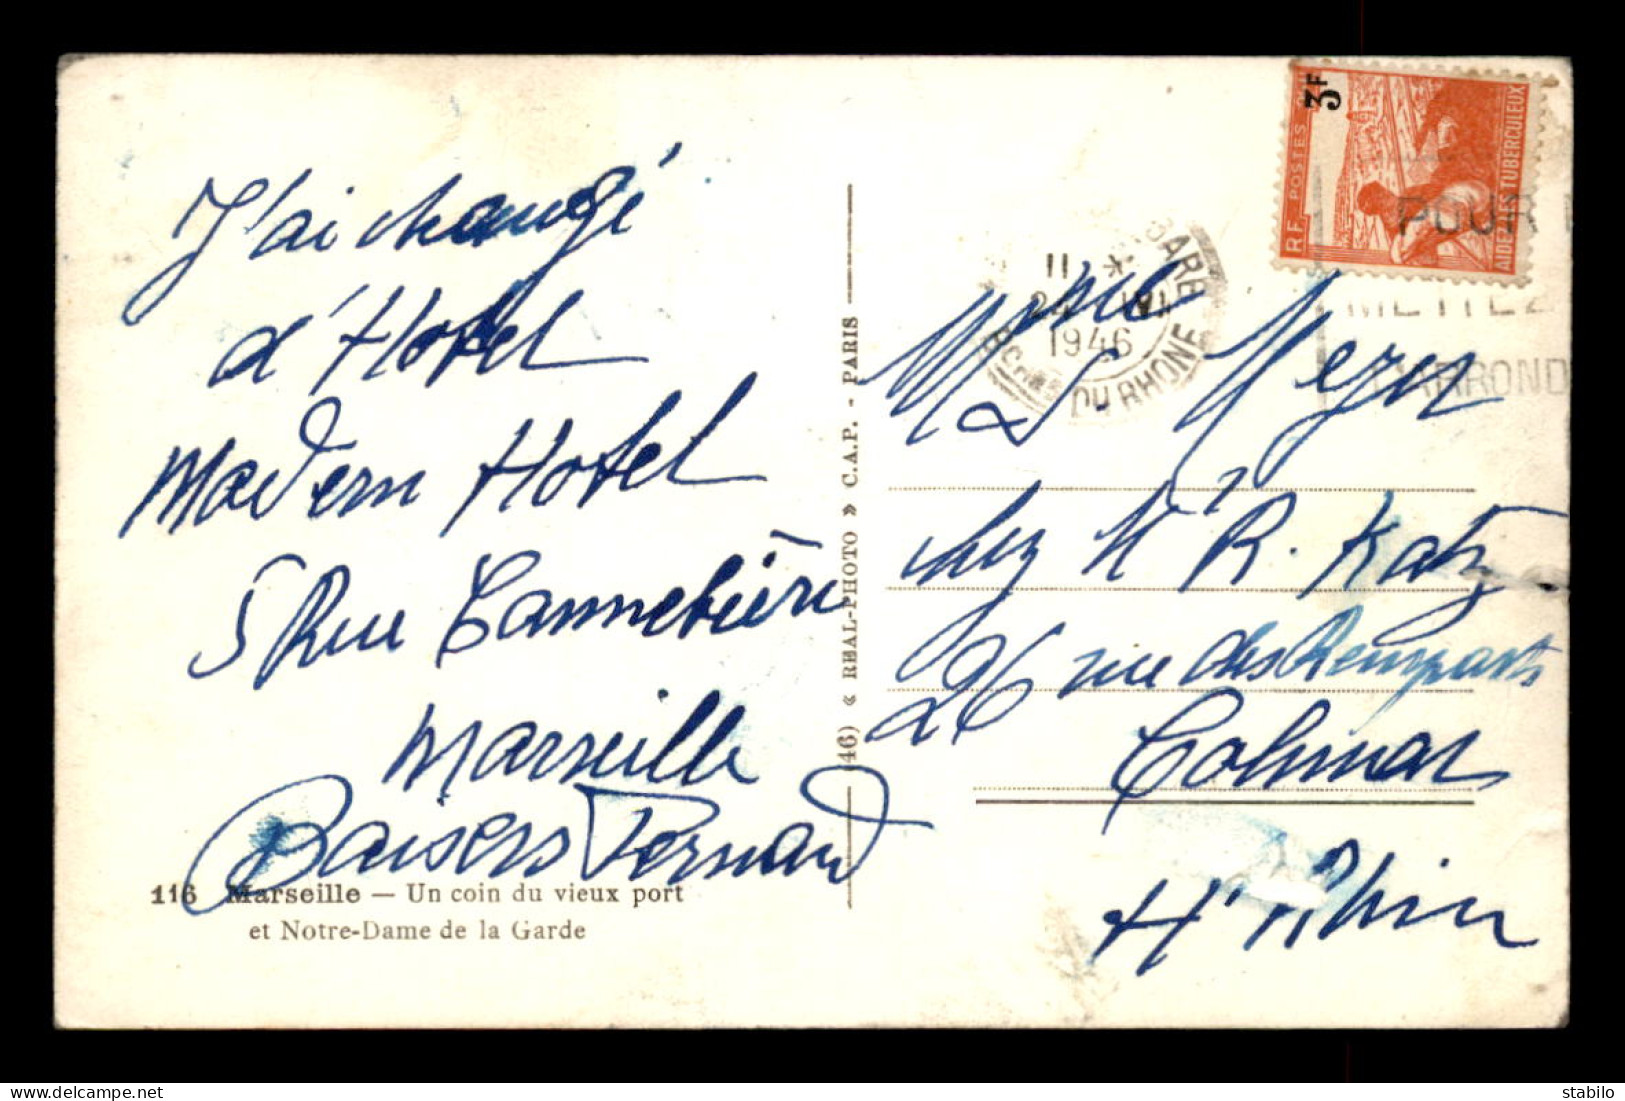 J'ai changé
d'Hotel
Modern Hotel
5 Rue Cannebière
Marseille
Baisers Fernand
116 Marseille — Un coin du vieux port
et Notre-Dame de la Garde
46) « REAL-PHOTO » C.A.P. - PARIS
RF POSTES
3F
AIDEZ LES TUBERCULEUX
GARE
11 *
24 VI
1946
BCHES DU RHONE
POUR
METTEZ
L'ARROND
Mme
L Meyer
chez Mr R. Katz
26 rue des Remparts
Colmar
Ht Rhin
stabylo